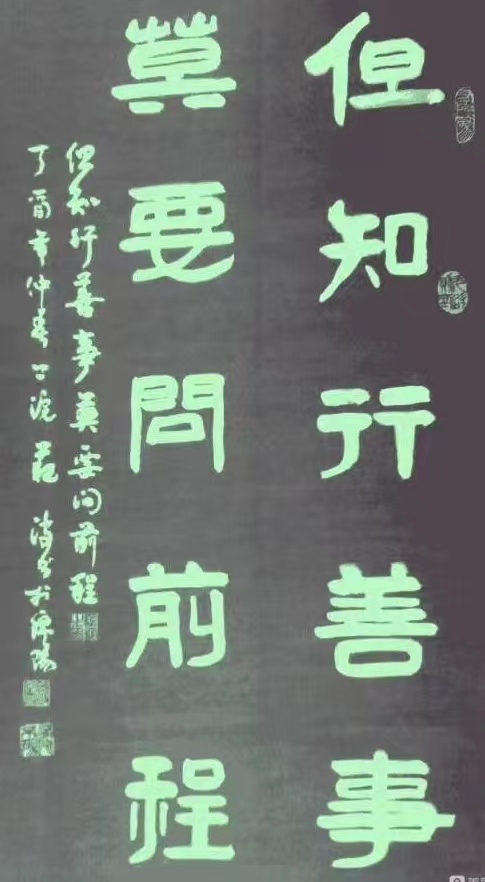 但知行善事
莫要問前程
但知行善事莫要问前程
丁酉年仲春
书于